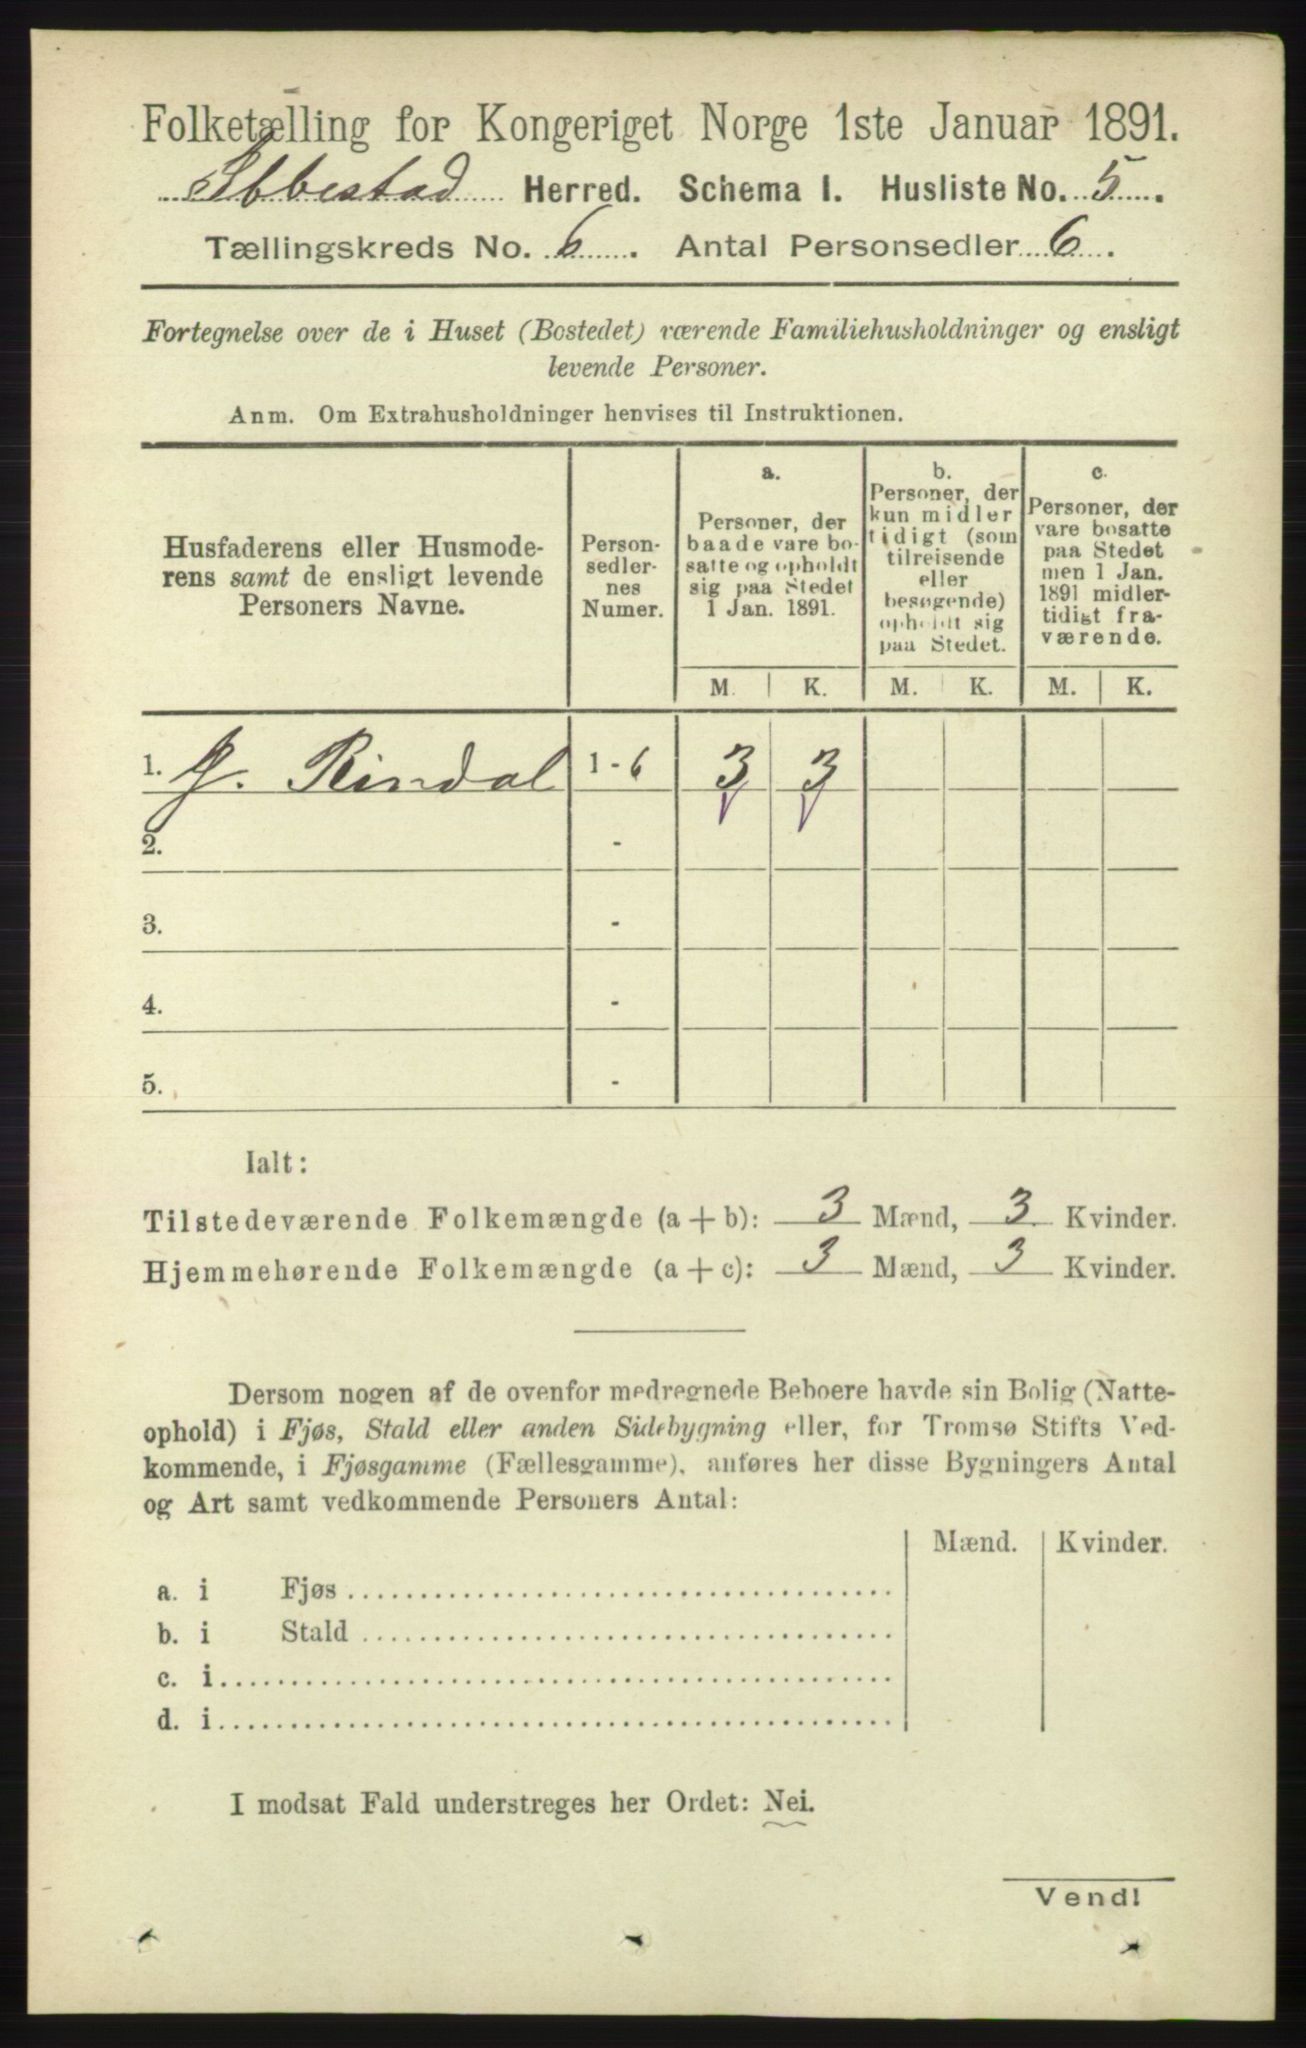 Folketælling for Kongeriget Norge 1ste Januar 1891.
Ibbestad Herred. Schema I. Husliste No. 5.
Tællingskreds No. 6. Antal Personsedler 6.
Fortegnelse over de i Huset (Bostedet) værende Familiehusholdninger og ensligt
levende Personer.
Anm. Om Extrahusholdninger henvises til Instruktionen.
Husfaderens eller Husmode-
rens samt de ensligt levende
Personers Navne.
Person-
sedler-
nes
Numer.
a.
Personer, der
baade vare bo-
satte og opholdt
sig paa Stedet
1 Jan. 1891.
b.
Personer, der
kun midler
tidigt (som
tilreisende
eller
besøgende)
opholdt sig
paa Stedet.
c.
Personer, der
vare bosatte
paa Stedet
men 1 Jan.
1891 midler-
tidigt fra-
værende.
M. K. M. K. M. K.
1. J. Rindal 1 - 6 3 3
2. -
3. -
4. -
5. -
Ialt:
Tilstedeværende Folkemængde (a + b): 3 Mænd, 3 Kvinder.
Hjemmehørende Folkemængde (a + c): 3 Mænd, 3 Kvinder.
Dersom nogen af de ovenfor medregnede Beboere havde sin Bolig (Natte-
ophold) i Fjøs, Stald eller anden Sidebygning eller, for Tromsø Stifts Ved-
kommende, i Fjøsgamme (Fællesgamme), anføres her disse Bygningers Antal
og Art samt vedkommende Personers Antal:
Mænd. Kvinder.
a. i Fjøs
b. i Stald
c. i
d. i
I modsat Fald understreges her Ordet: Nei.
Vend!